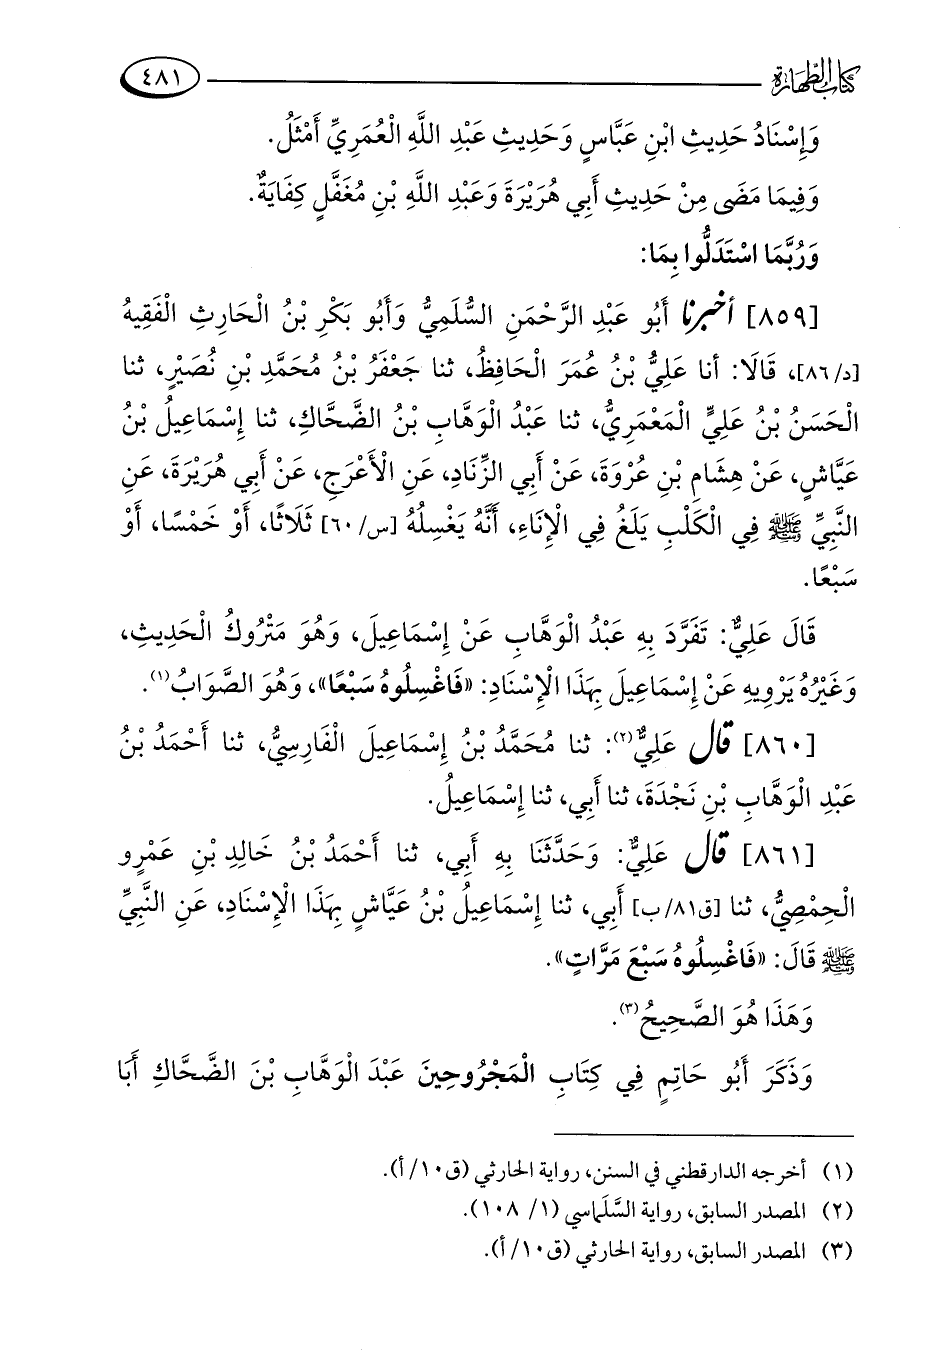 كتاب الطهارة ٤٨١
وَإِسْنَادُ حَدِيثِ ابْنِ عَبَّاسٍ وَحَدِيثِ عَبْدِ اللَّهِ الْعُمَرِيِّ أَمْثَلُ.
وَفِيمَا مَضَى مِنْ حَدِيثِ أَبِي هُرَيْرَةَ وَعَبْدِ اللَّهِ بْنِ مُغَفَّلٍ كِفَايَةٌ.
وَرُبَّمَا اسْتَدَلُّوا بِمَا:
[٨٥٩] أخبرنا أَبُو عَبْدِ الرَّحْمَنِ السُّلَمِيُّ وَأَبُو بَكْرِ بْنُ الْحَارِثِ الْفَقِيهُ
[د/٨٦]، قَالَا: أنا عَلِيُّ بْنُ عُمَرَ الْحَافِظُ، ثنا جَعْفَرُ بْنُ مُحَمَّدِ بْنِ نُصَيْرٍ، ثنا
الْحَسَنُ بْنُ عَلِيٍّ الْمَعْمَرِيُّ، ثنا عَبْدُ الْوَهَّابِ بْنُ الضَّحَّاكِ، ثنا إِسْمَاعِيلُ بْنُ
عَيَّاشٍ، عَنْ هِشَامِ بْنِ عُرْوَةَ، عَنْ أَبِي الزِّنَادِ، عَنِ الْأَعْرَجِ، عَنْ أَبِي هُرَيْرَةَ، عَنِ
النَّبِيِّ ﷺ فِي الْكَلْبِ يَلَغُ فِي الْإِنَاءِ، أَنَّهُ يَغْسِلُهُ [س/٦٠] ثَلَاثًا، أَوْ خَمْسًا، أَوْ
سَبْعًا.
قَالَ عَلِيٌّ: تَفَرَّدَ بِهِ عَبْدُ الْوَهَّابِ عَنْ إِسْمَاعِيلَ، وَهُوَ مَتْرُوكُ الْحَدِيثِ،
وَغَيْرُهُ يَرْوِيهِ عَنْ إِسْمَاعِيلَ بِهَذَا الْإِسْنَادِ: «فَاغْسِلُوهُ سَبْعًا»، وَهُوَ الصَّوَابُ(١).
[٨٦٠] قال عَلِيٌّ(٢): ثنا مُحَمَّدُ بْنُ إِسْمَاعِيلَ الْفَارِسِيُّ، ثنا أَحْمَدُ بْنُ
عَبْدِ الْوَهَّابِ بْنِ نَجْدَةَ، ثنا أَبِي، ثنا إِسْمَاعِيلُ.
[٨٦١] قال عَلِيٌّ: وَحَدَّثَنَا بِهِ أَبِي، ثنا أَحْمَدُ بْنُ خَالِدِ بْنِ عَمْرٍو
الْحِمْصِيُّ، ثنا [ق٨١/ب] أَبِي، ثنا إِسْمَاعِيلُ بْنُ عَيَّاشٍ بِهَذَا الْإِسْنَادِ، عَنِ النَّبِيِّ
ﷺ قَالَ: «فَاغْسِلُوهُ سَبْعَ مَرَّاتٍ».
وَهَذَا هُوَ الصَّحِيحُ(٣).
وَذَكَرَ أَبُو حَاتِمٍ فِي كِتَابِ الْمَجْرُوحِينَ عَبْدَ الْوَهَّابِ بْنَ الضَّحَّاكِ أَبَا
(١) أخرجه الدارقطني في السنن، رواية الحارثي (ق١٠/أ).
(٢) المصدر السابق، رواية السَّلَمَاسي (١/ ١٠٨).
(٣) المصدر السابق، رواية الحارثي (ق١٠/أ).